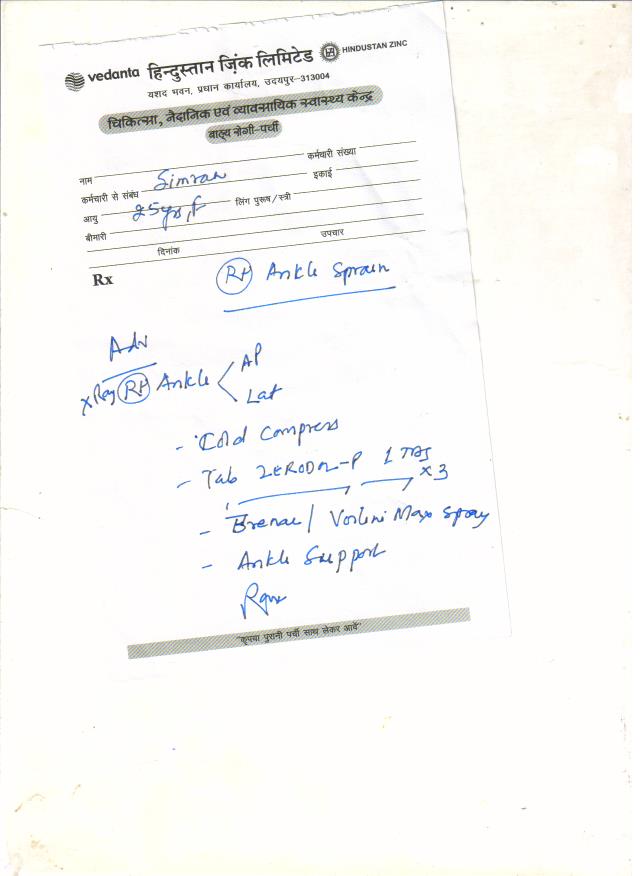 vedanta हिन्दुस्तान ज़िंक लिमिटेड HINDUSTAN ZINC
यशद भवन, प्रधान कार्यालय, उदयपुर-313004
चिकित्सा, नैदानिक एवं व्यावसायिक स्वास्थ्य केन्द्र
बाह्य रोगी-पर्ची
नाम Simran कर्मचारी संख्या
कर्मचारी से संबंध इकाई
आयु 25yrs, F लिंग पुरूष/स्त्री
बीमारी
दिनांक उपचार
Rx
Rt Ankle Sprain
Adv
Xray Rt Ankle AP
Lat
- Cold Compress
- Tab ZERODOL-P 1 TDS
x3
- / Volini Max Spray
- Ankle Support
"कृपया पुरानी पर्ची साथ लेकर आवें"